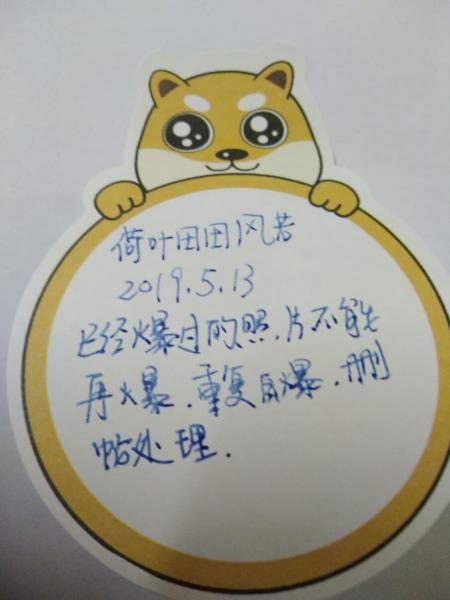 荷叶田田风若
2019.5.13
已经爆过的照片不能
再爆.重复自爆.删
帖处理.